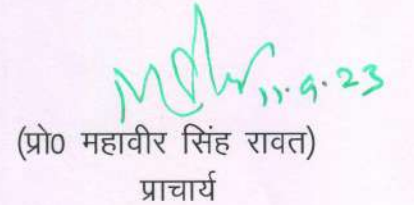 11.9.23
(प्रो0 महावीर सिंह रावत)
प्राचार्य